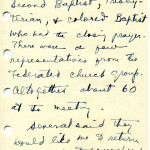 Second Baptist, Presby-
terian, & colored Baptist
who had the closing prayer.
There were a few
representatives from the
Federated church group.
Altogether about 60
at the meeting.
Several said they
would like me to return